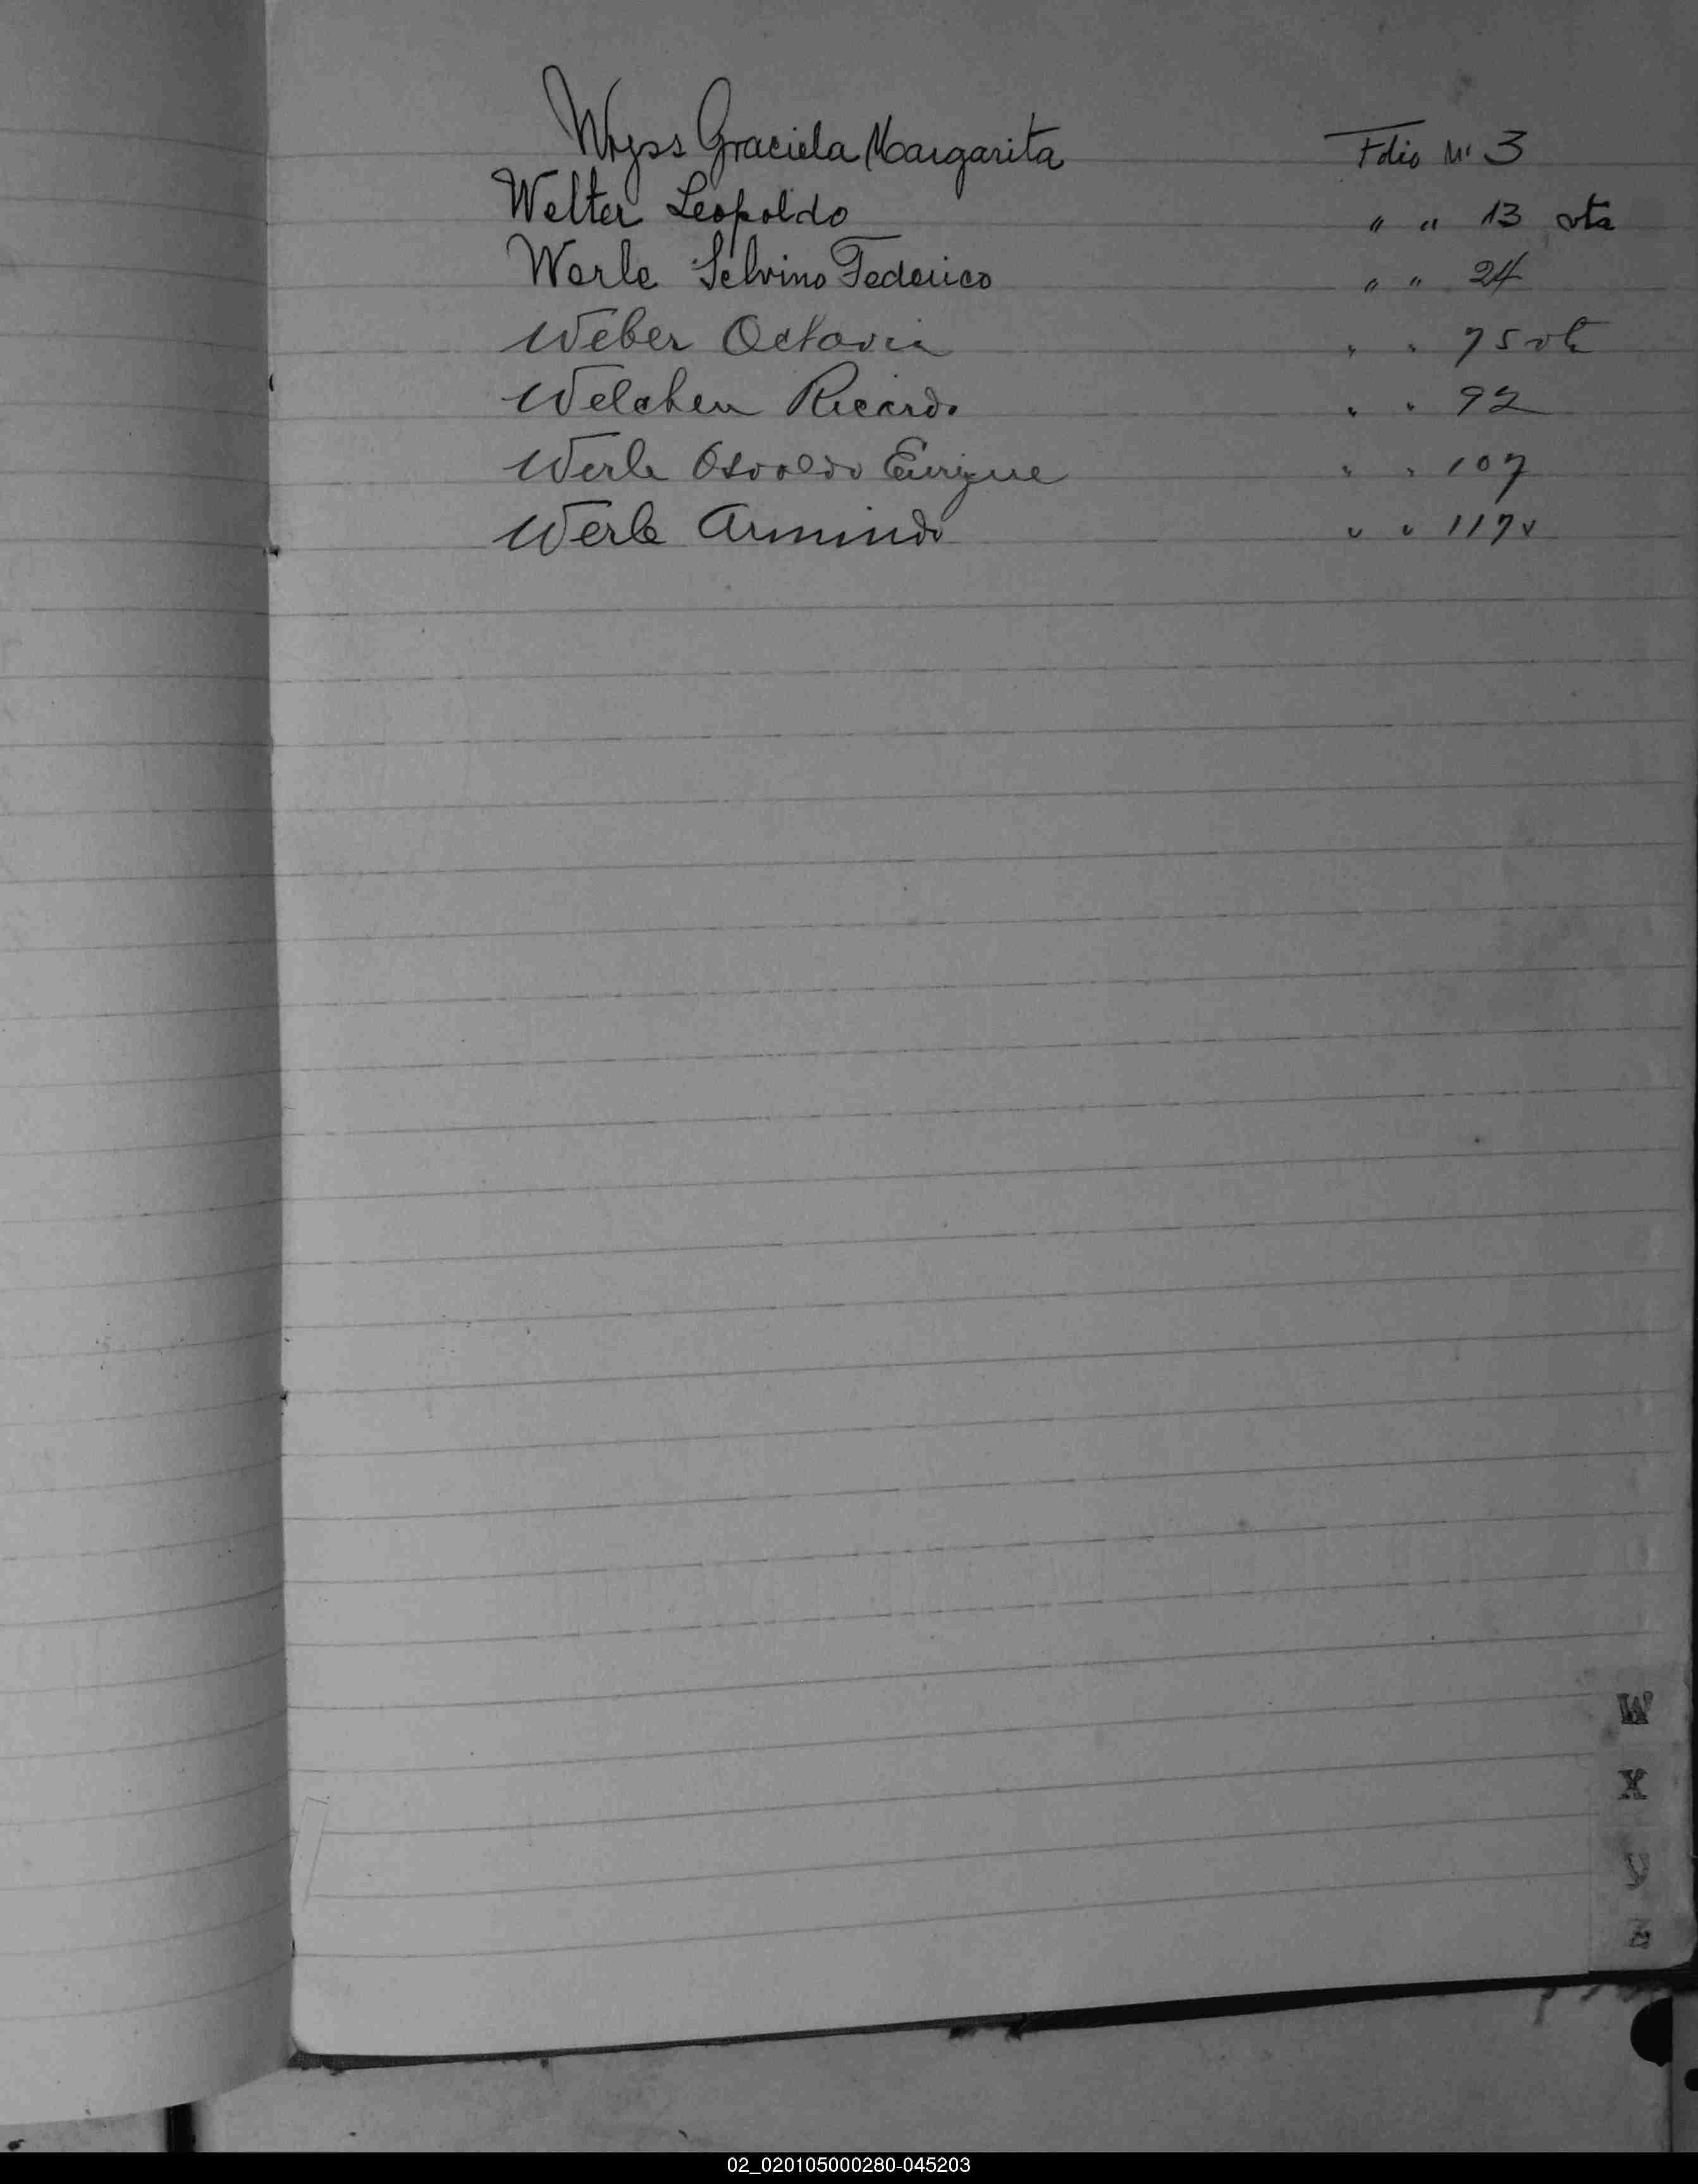 Wyss Graciela Margarita Folio Nº 3
Welter Leopoldo " " 13 vta
Werle Selvino Federico " " 24
Weber Octavia " " 75 vta
Welchen Ricardo " " 92
Werle Osvaldo Enrique " " 107
Werle Armindo " " 117 v
W
X
Y
Z
02_020105000280-045203